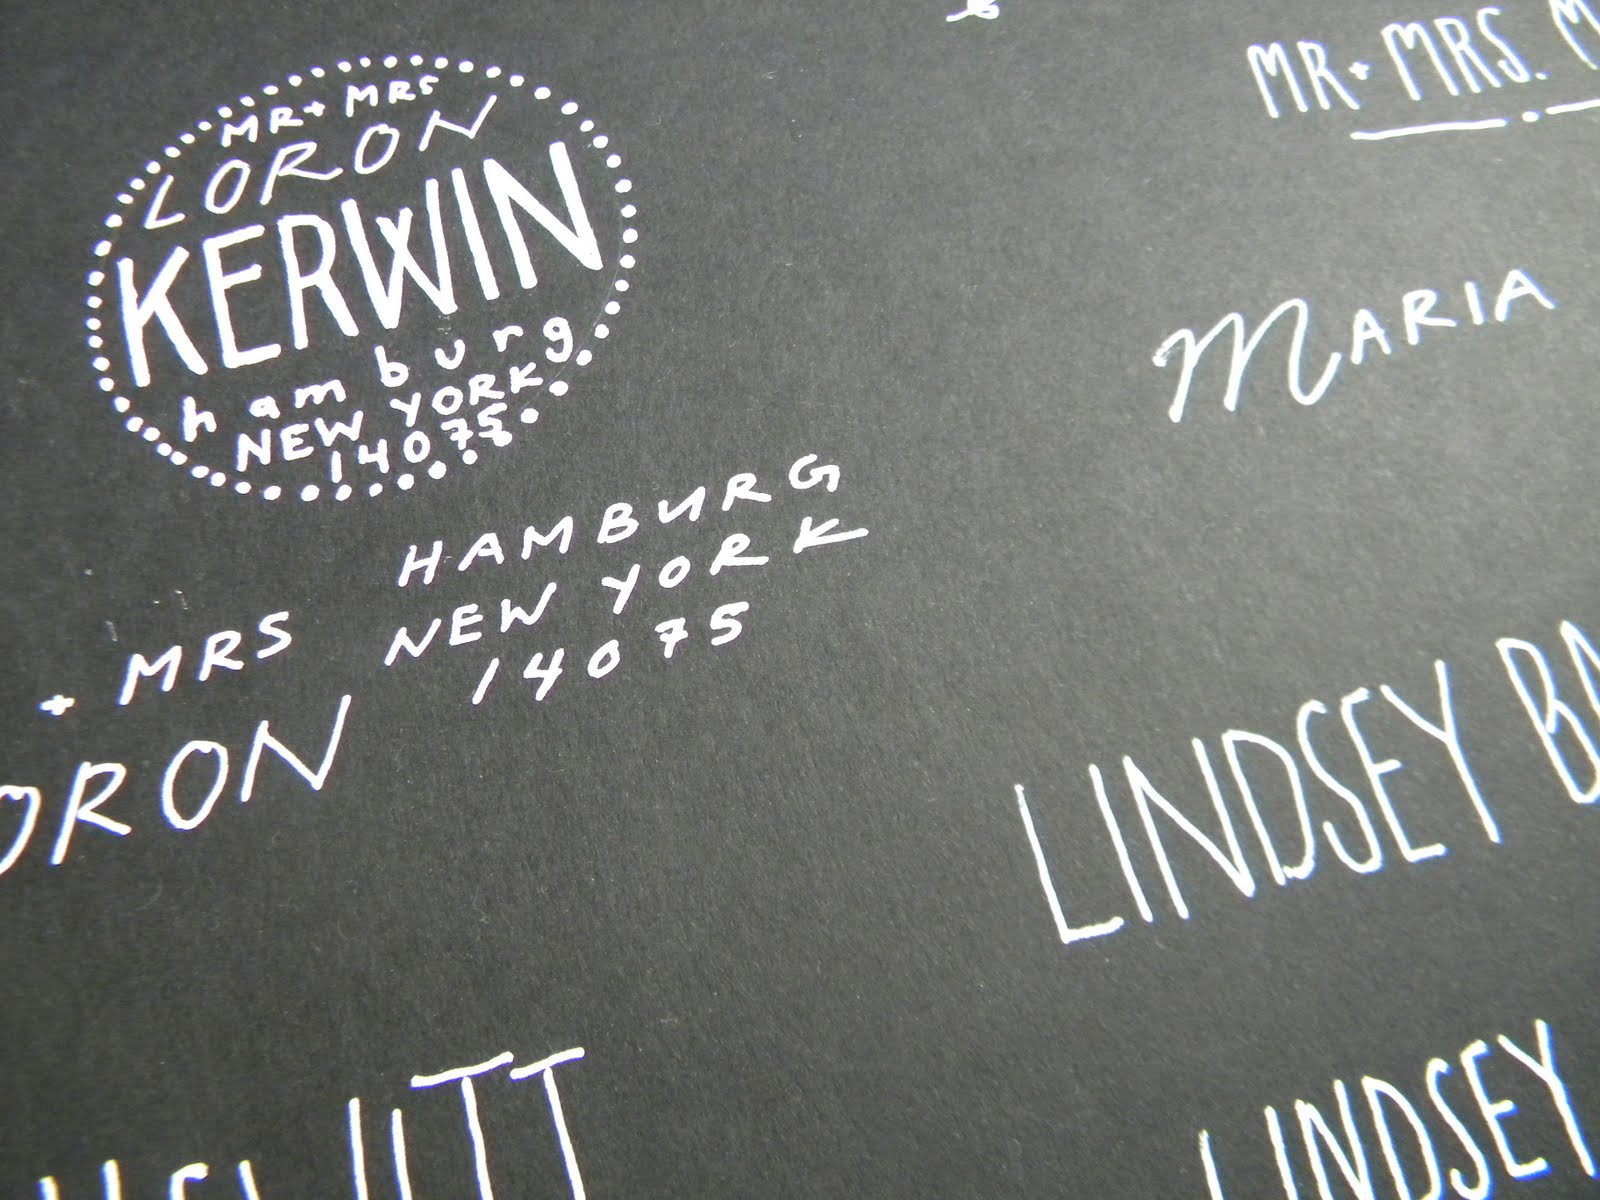 MR + MRS
LORON
KERWIN
hamburg
NEW YORK
14075
MR + MRS. M
MARIA
HAMBURG
NEW YORK
14075
+ MRS
ORON
LINDSEY BA
LINDSEY